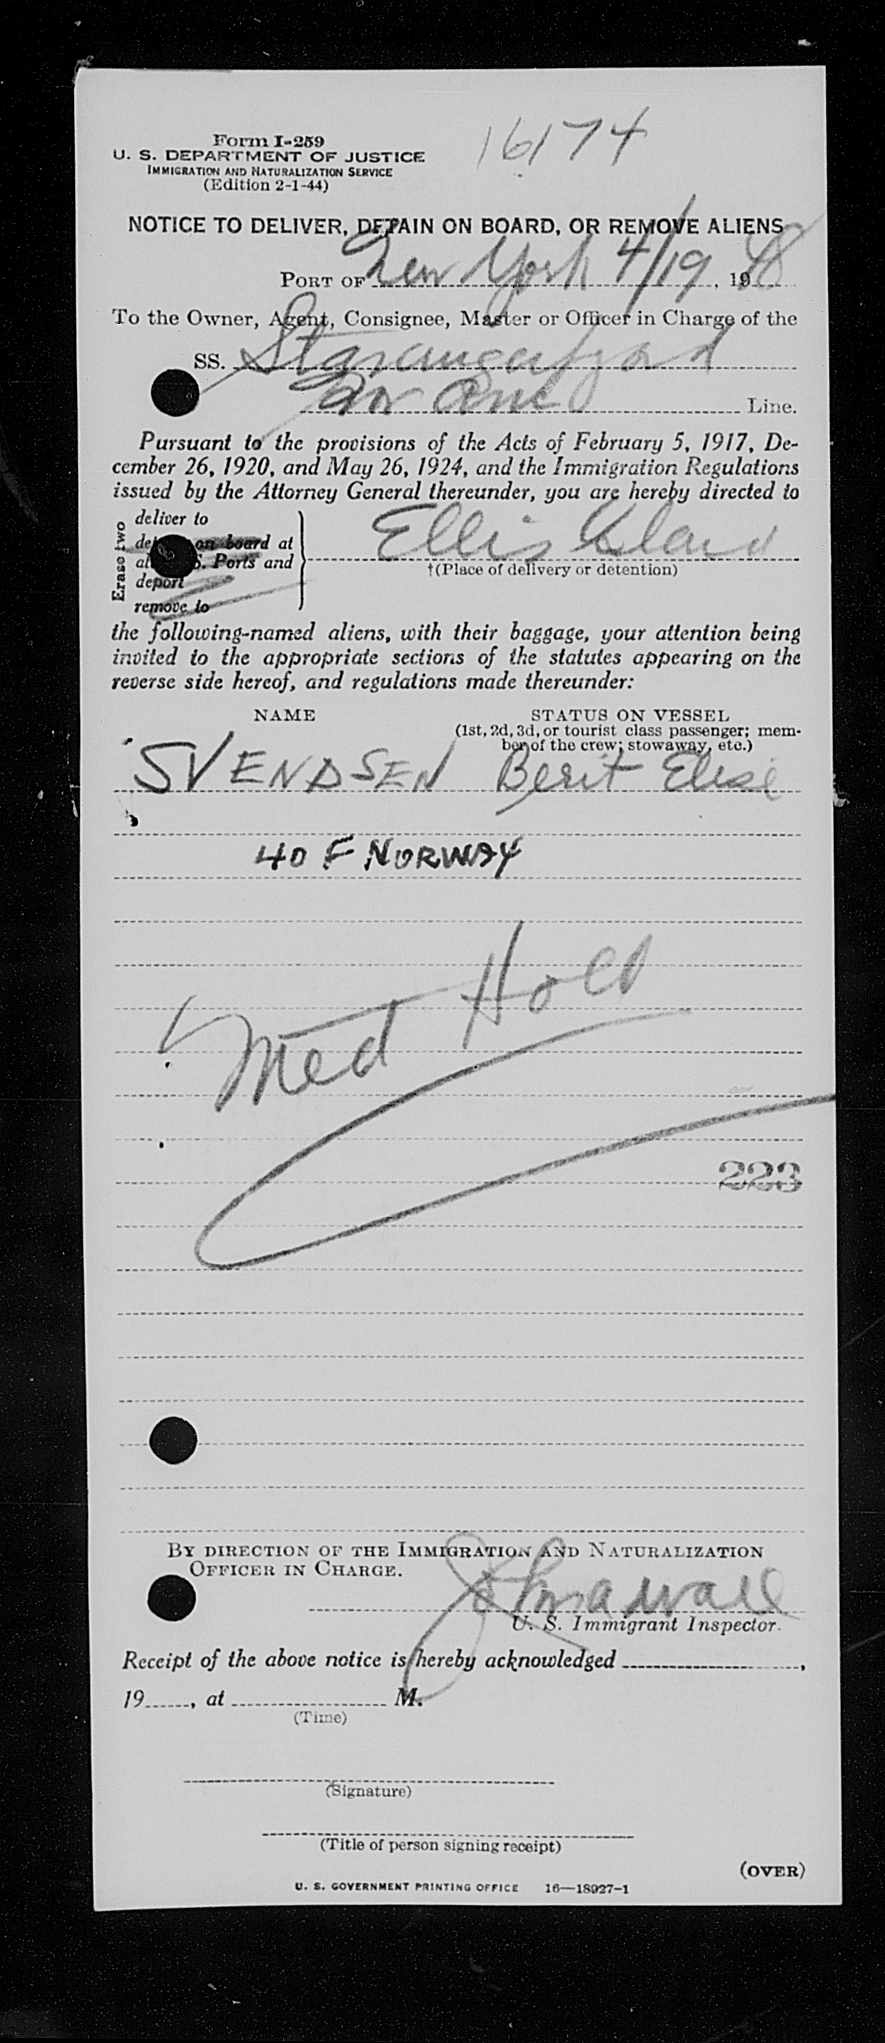 Form I-259
16174
U. S. DEPARTMENT OF JUSTICE
IMMIGRATION AND NATURALIZATION SERVICE
(Edition 2-1-44)
NOTICE TO DELIVER, DETAIN ON BOARD, OR REMOVE ALIENS
PORT OF New York 4/19, 198
To the Owner, Agent, Consignee, Master or Officer in Charge of the
SS. Stavangerfjord
Nor Am Line.
Pursuant to the provisions of the Acts of February 5, 1917, De-
cember 26, 1920, and May 26, 1924, and the Immigration Regulations
issued by the Attorney General thereunder, you are hereby directed to
Erase two
deliver to
on board at
S. Ports and
deport
remove to
Ellis Island
†(Place of delivery or detention)
the following-named aliens, with their baggage, your attention being
invited to the appropriate sections of the statutes appearing on the
reverse side hereof, and regulations made thereunder:
NAME
STATUS ON VESSEL
(1st, 2d, 3d, or tourist class passenger; mem-
ber of the crew; stowaway, etc.)
SVENDSEN Berit Elise
40 F NORWAY
Med Hold
223
BY DIRECTION OF THE IMMIGRATION AND NATURALIZATION
OFFICER IN CHARGE.
U. S. Immigrant Inspector.
Receipt of the above notice is hereby acknowledged ,
19 , at M.
(Time)
(Signature)
(Title of person signing receipt)
(OVER)
U. S. GOVERNMENT PRINTING OFFICE 16—18927-1